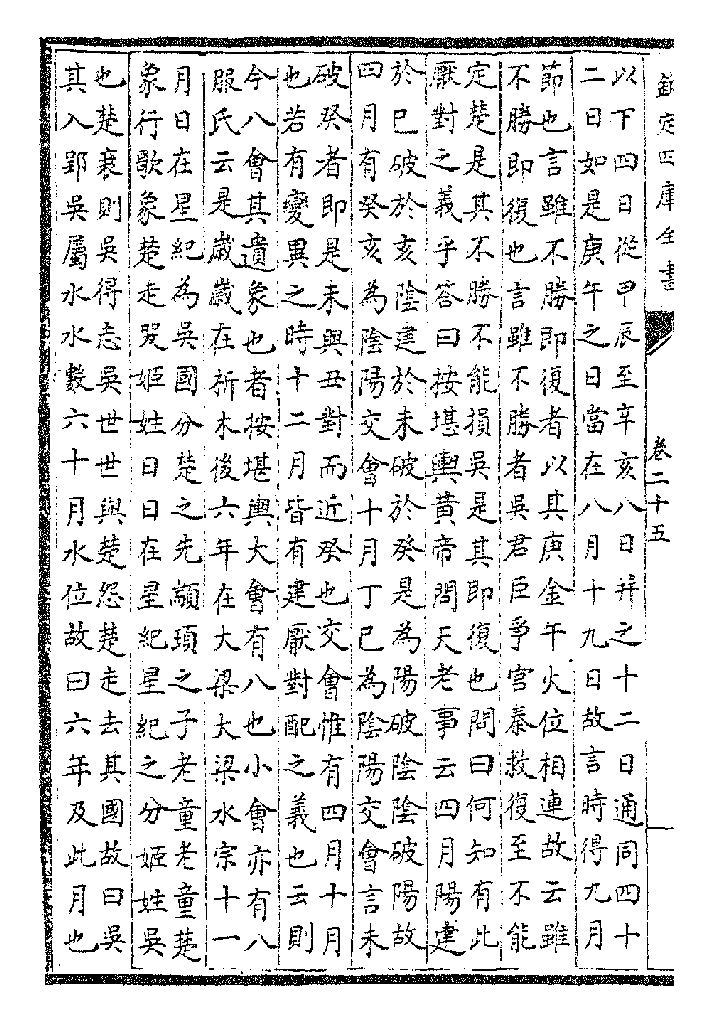 欽定四庫全書
卷二十五
以下四日從甲辰至辛亥八日并之十二日通同四十
二日如是庚午之日當在八月十九日故言時得九月
節也言雖不勝即復者以其庚金午火位相連故云雖
不勝即復也言雖不勝者吳君臣爭宮秦救復至不能
定楚是其不勝不能損吳是其即復也問曰何知有此
厭對之義乎答曰按堪輿黄帝問天老事云四月陽建
於巳破於亥陰建於未破於癸是為陽破陰陰破陽故
四月有癸亥為陰陽交會十月丁巳為陰陽交會言未
破癸者即是未與丑對而近癸也交會惟有四月十月
也若有變異之時十二月皆有建厭對配之義也云則
今八會其遺象也者按堪輿大會有八也小會亦有八
服氏云是歲歲在析木後六年在大梁大梁水宗十一
月日在星紀為吳國分楚之先顓頊之子老童老童楚
象行歌象楚走哭姬姓日日在星紀星紀之分姬姓吳
也楚衰則吳得志吳世世與楚怨楚走去其國故曰吳
其入郢吳屬水水數六十月水位故曰六年及此月也